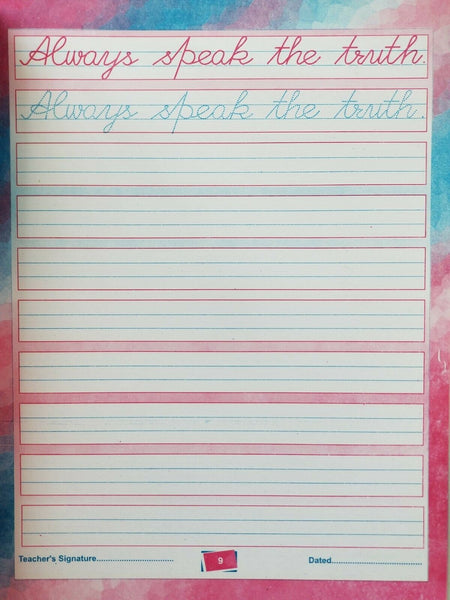 Always speak the truth.
Always speak the truth.
Teacher's Signature............................ 9 Dated................................